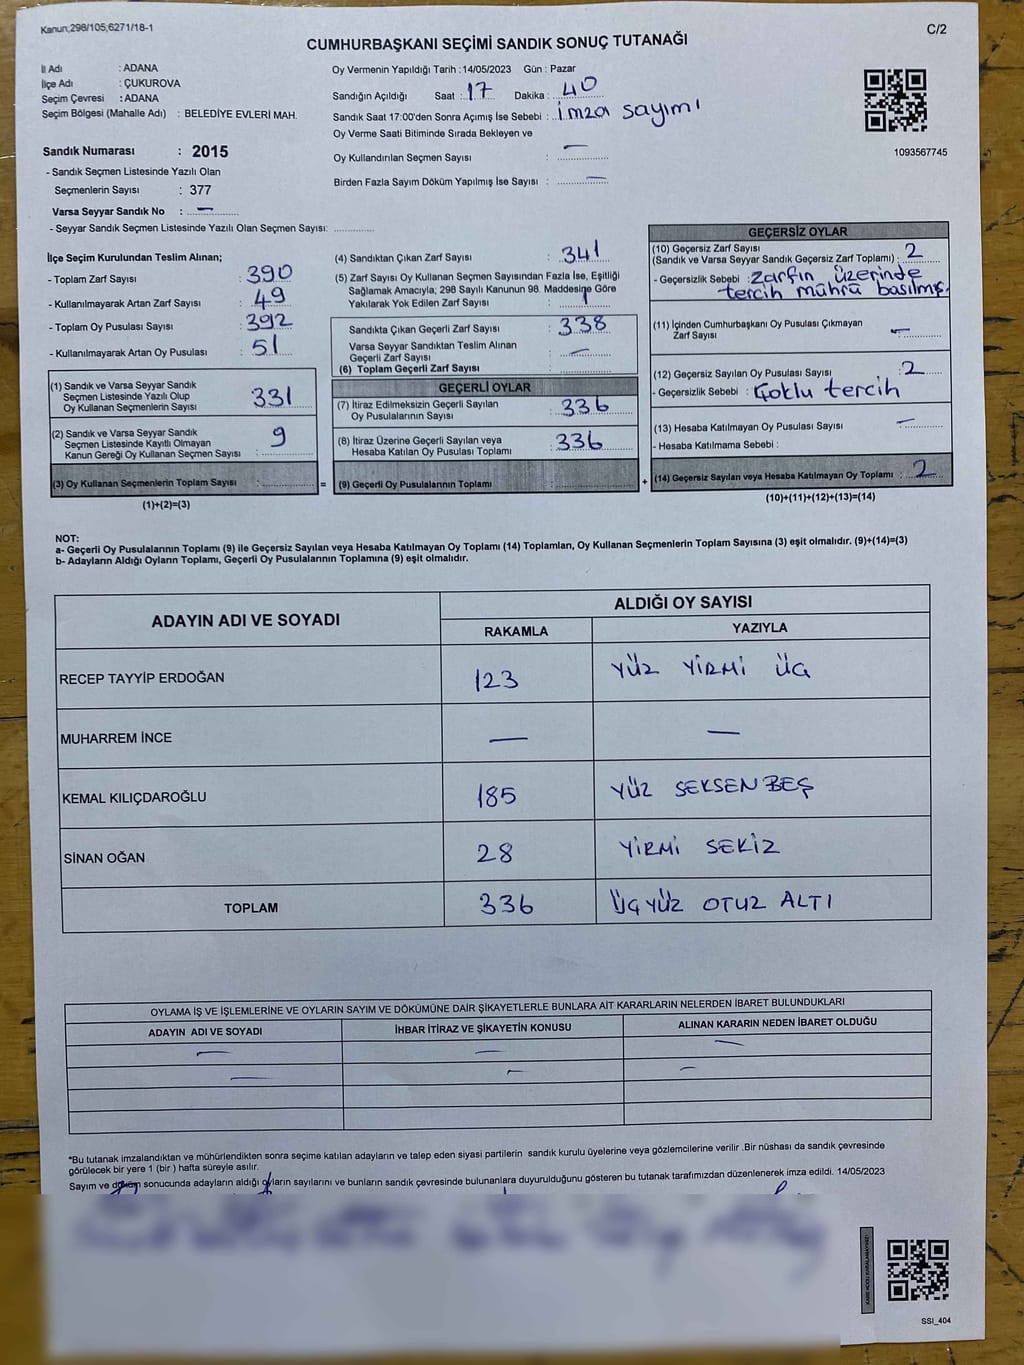 Kanun;298/105,6271/18-1
C/2
CUMHURBAŞKANI SEÇİMİ SANDIK SONUÇ TUTANAĞI
İl Adı : ADANA
İlçe Adı : ÇUKUROVA
Seçim Çevresi : ADANA
Seçim Bölgesi (Mahalle Adı) : BELEDİYE EVLERİ MAH.
Sandık Numarası : 2015
- Sandık Seçmen Listesinde Yazılı Olan
Seçmenlerin Sayısı : 377
Varsa Seyyar Sandık No : —
- Seyyar Sandık Seçmen Listesinde Yazılı Olan Seçmen Sayısı: ..............
Oy Vermenin Yapıldığı Tarih : 14/05/2023 Gün : Pazar
Sandığın Açıldığı Saat : 17 Dakika : 40
Sandık Saat 17:00'den Sonra Açımış İse Sebebi : imza sayımı
Oy Verme Saati Bitiminde Sırada Bekleyen ve
Oy Kullandırılan Seçmen Sayısı : —
Birden Fazla Sayım Döküm Yapılmış İse Sayısı : —
1093567745
İlçe Seçim Kurulundan Teslim Alınan;
- Toplam Zarf Sayısı : 390
- Kullanılmayarak Artan Zarf Sayısı : 49
- Toplam Oy Pusulası Sayısı : 392
- Kullanılmayarak Artan Oy Pusulası : 51
(1) Sandık ve Varsa Seyyar Sandık
Seçmen Listesinde Yazılı Olup
Oy Kullanan Seçmenlerin Sayısı : 331
(2) Sandık ve Varsa Seyyar Sandık
Seçmen Listesinde Kayıtlı Olmayan
Kanun Gereği Oy Kullanan Seçmen Sayısı : 9
(3) Oy Kullanan Seçmenlerin Toplam Sayısı : .............. =
(1)+(2)=(3)
(4) Sandıktan Çıkan Zarf Sayısı : 341
(5) Zarf Sayısı Oy Kullanan Seçmen Sayısından Fazla İse, Eşitliği
Sağlamak Amacıyla; 298 Sayılı Kanunun 98. Maddesine Göre
Yakılarak Yok Edilen Zarf Sayısı : 1
Sandıkta Çıkan Geçerli Zarf Sayısı : 338
Varsa Seyyar Sandıktan Teslim Alınan
Geçerli Zarf Sayısı : —
(6) Toplam Geçerli Zarf Sayısı : ..............
GEÇERLİ OYLAR
(7) İtiraz Edilmeksizin Geçerli Sayılan
Oy Pusulalarının Sayısı : 336
(8) İtiraz Üzerine Geçerli Sayılan veya
Hesaba Katılan Oy Pusulası Toplamı : 336
(9) Geçerli Oy Pusulalarının Toplamı : .............. +
GEÇERSİZ OYLAR
(10) Geçersiz Zarf Sayısı
(Sandık ve Varsa Seyyar Sandık Geçersiz Zarf Toplamı) : 2
- Geçersizlik Sebebi : zarfın üzerinde
tercih mührü basılmış.
(11) İçinden Cumhurbaşkanı Oy Pusulası Çıkmayan
Zarf Sayısı : —
(12) Geçersiz Sayılan Oy Pusulası Sayısı : 2
- Geçersizlik Sebebi : Çoklu tercih
(13) Hesaba Katılmayan Oy Pusulası Sayısı : —
- Hesaba Katılmama Sebebi :
(14) Geçersiz Sayılan veya Hesaba Katılmayan Oy Toplamı : 2
(10)+(11)+(12)+(13)=(14)
NOT:
a- Geçerli Oy Pusulalarının Toplamı (9) ile Geçersiz Sayılan veya Hesaba Katılmayan Oy Toplamı (14) Toplamları, Oy Kullanan Seçmenlerin Toplam Sayısına (3) eşit olmalıdır. (9)+(14)=(3)
b- Adayların Aldığı Oyların Toplamı, Geçerli Oy Pusulalarının Toplamına (9) eşit olmalıdır.
ADAYIN ADI VE SOYADI ALDIĞI OY SAYISI
RAKAMLA YAZIYLA
RECEP TAYYİP ERDOĞAN 123 YÜZ YİRMİ ÜÇ
MUHARREM İNCE — —
KEMAL KILIÇDAROĞLU 185 YÜZ SEKSEN BEŞ
SİNAN OĞAN 28 YİRMİ SEKİZ
TOPLAM 336 ÜÇ YÜZ OTUZ ALTI
OYLAMA İŞ VE İŞLEMLERİNE VE OYLARIN SAYIM VE DÖKÜMÜNE DAİR ŞİKAYETLERLE BUNLARA AİT KARARLARIN NELERDEN İBARET BULUNDUKLARI
ADAYIN ADI VE SOYADI İHBAR İTİRAZ VE ŞİKAYETİN KONUSU ALINAN KARARIN NEDEN İBARET OLDUĞU
— — —
— — —
*Bu tutanak imzalandıktan ve mühürlendikten sonra seçime katılan adayların ve talep eden siyasi partilerin sandık kurulu üyelerine veya gözlemcilerine verilir .Bir nüshası da sandık çevresinde
görülecek bir yere 1 (bir ) hafta süreyle asılır.
Sayım ve döküm sonucunda adayların aldığı oyların sayılarını ve bunların sandık çevresinde bulunanlara duyurulduğunu gösteren bu tutanak tarafımızdan düzenlenerek imza edildi. 14/05/2023
SSI_404